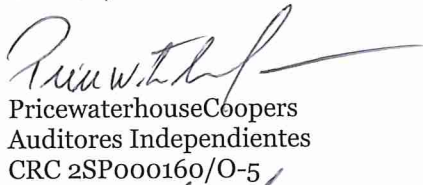 PricewaterhouseCoopers
Auditores Independientes
CRC 2SP000160/O-5